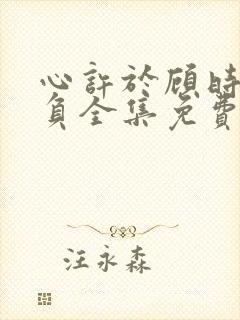 心許於顾時
負全集免費
汪永森